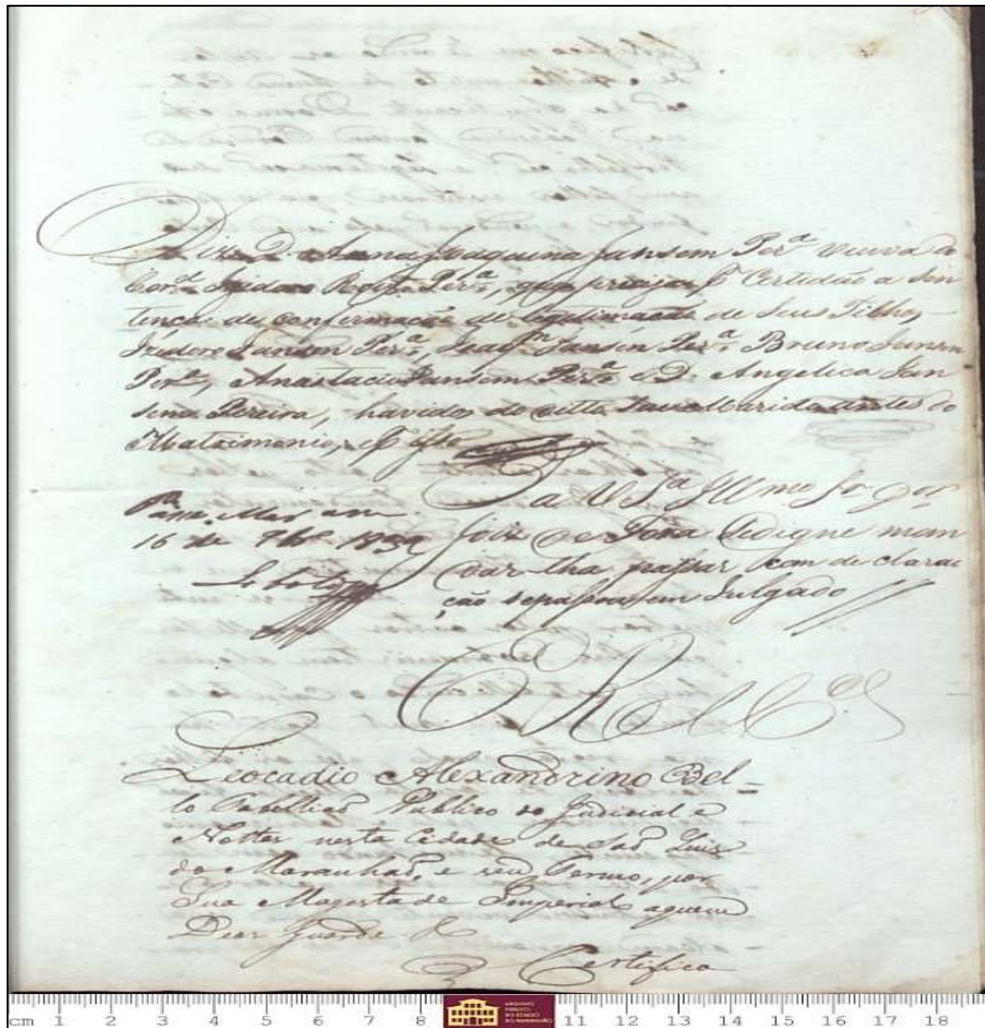 Diz D. Anna Joaquina Jansem Per.ª viuva do
Cor.el Izidoro Rodg.s Per.ª, que precisa p.r Certidão a Sen
tença de confirmação de legitimação de seus Filhos,
Izidoro Jansen Per.ª, Joaq.m Jansen Per.ª, Bruno Jansen
Per.ª, Anastacio Jansem Per.ª e D. Angelica Jan
sem Pereira, havidos do ditto seu Marido antes do
Matrimonio, e p.r isso
P.a V S.ª Illmo Sr. Dor
Juiz de Fora se digne man
dar lha passar com declara
ção se passou em Julgado
Passe. Mar.am
16 de 7br.o 1832
E R M.ce
Leocadio Alexandrino Bel-
lo Tabelliaõ Publico do Judicial e
Nottas nesta Cidade de Saõ Luis
do Maranhaõ, e seu Termo, por
Sua Magestade Imperial aquem
Deos Guarde &
Certifico
cm 1 2 3 4 5 6 7 8 11 12 13 14 15 16 17 18
ARQUIVO
PÚBLICO
DO ESTADO
DO MARANHÃO